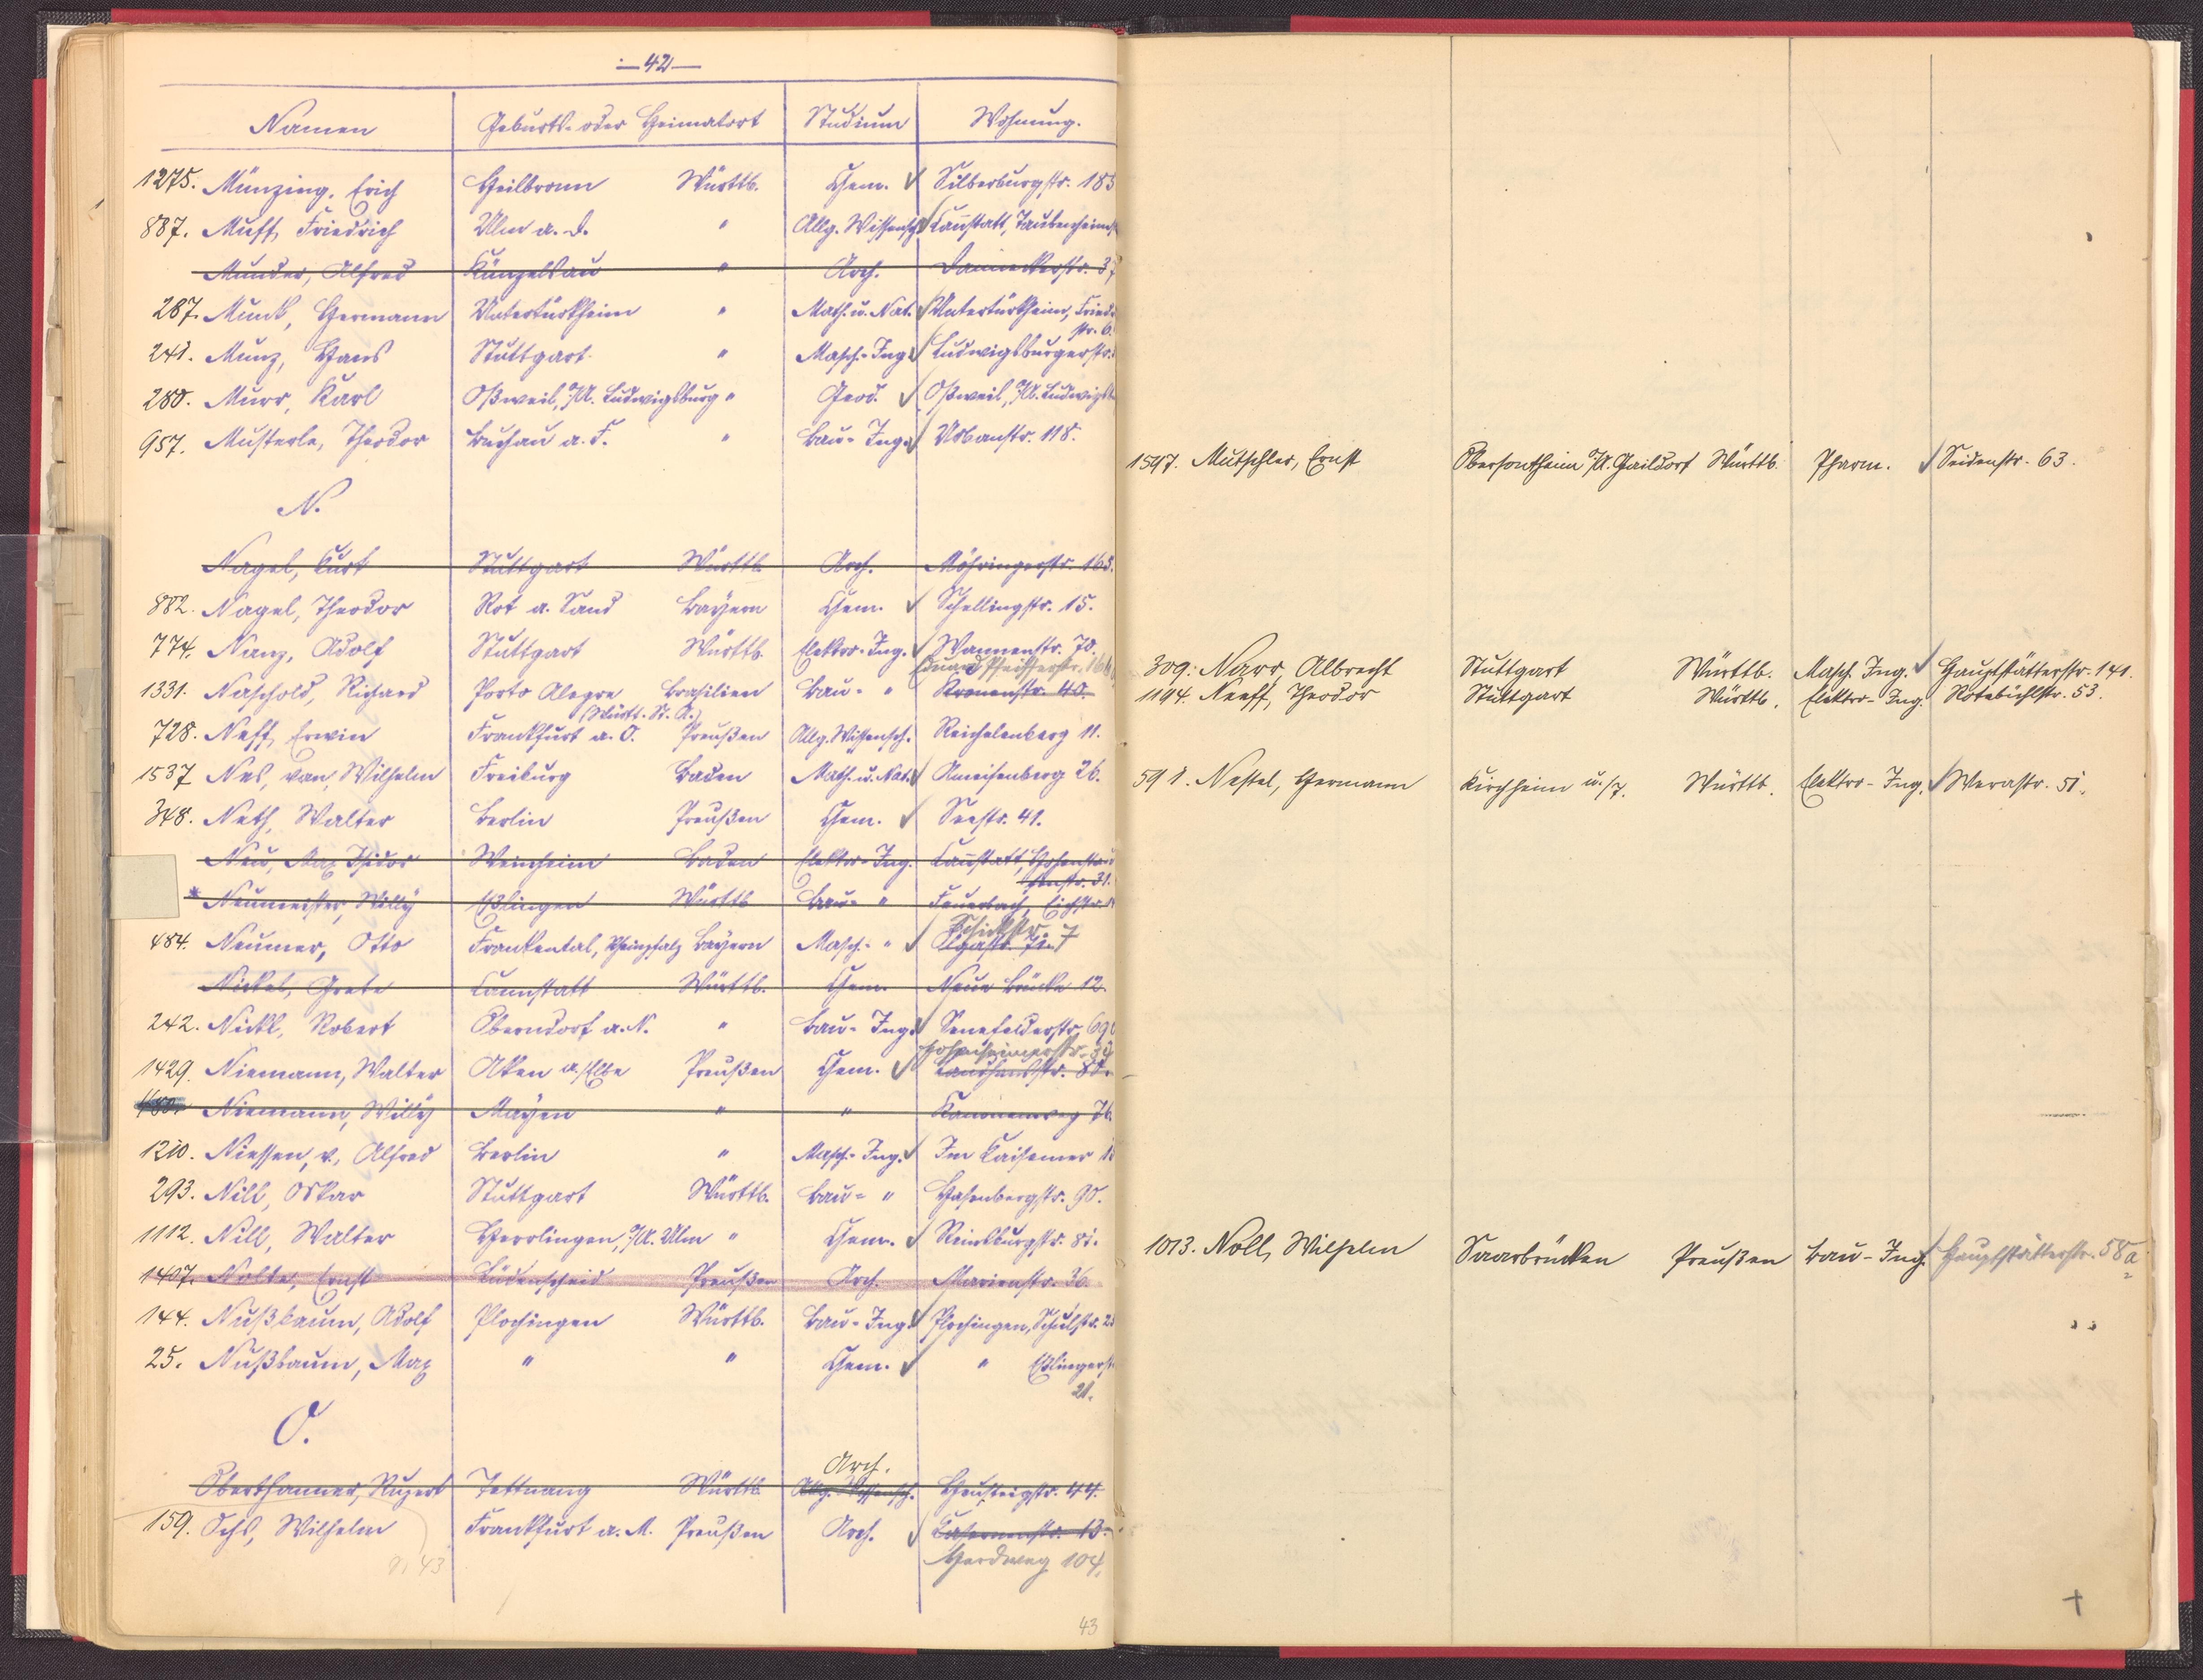 — 42 —
Namen Geburts- oder Heimatort Studium Wohnung.
1275. Münzing, Erich Heilbronn Württb. Chem. ✓ Silberburgstr. 183
887. Muff, Friedrich Ulm a. D. " Allg. Wissensch. ✓ Cannstatt, Taubenheimst
Munder, Alfred Künzelsau " Arch. Danneckerstr. 37
287. Munk, Hermann Untertürkheim " Math. u. Nat. ✓ Untertürkheim, Fried.
str. 6.
241. Munz, Hans Stuttgart " Masch.-Ing. ✓ Ludwigsburgerstr.
280. Murr, Karl Oßweil, O/A. Ludwigsburg " Geod. ✓ Oßweil, O/A. Ludwigsb
957. Musterle, Theodor Buchau a. F. " Bau-Ing. ✓ Urbanstr. 118.
N.
Nagel, Curt Stuttgart Württb. Arch. Möhringerstr. 165.
882. Nagel, Theodor Rot a. Sand Bayern Chem. ✓ Schellingstr. 15.
774. Nanz, Adolf Stuttgart Württb. Elektro-Ing. ✓ Wannenstr. 70.
Eduard Pfeifferstr.
1331. Naschold, Richard Porto Alegre Brasilien Bau- " Kronenstr. 40.
(Württ. St. A.)
728. Neff, Erwin Frankfurt a. O. Preußen Allg. Wissensch. Reichelenberg 11.
1537 Nes, van, Wilhelm Freiburg Baden Math. u. Nat. ✓ Ameisenberg 26.
348. Neth, Walter Berlin Preußen Chem. ✓ Seestr. 41.
Neu, Max Isidor Weinheim Baden Elektro-Ing. Cannstatt, Hohenstau
fenstr. 31.
* Neumeister, Willy Eßlingen Württb. Bau- " Feuerbach, Eichstr.
Schickstr. 7
484. Neumer, Otto Frankental, Rheinpfalz Bayern Masch.- " ✓ Olgastr.
Nickel, Grete Cannstatt Württb. Chem. Neue Brücke 12.
242. Nickl, Robert Oberndorf a. N. " Bau-Ing. ✓ Senefelderstr.
Hohenheimerstr.
1429. Niemann, Walter Aken a/Elbe Preußen Chem. ✓ Landhausstr. 80.
Niemann, Willy Mayen " " Kanonenweg 76.
1210. Niessen, v., Alfred Berlin " Masch.-Ing. ✓ Im Kaisemer
293. Nill, Oskar Stuttgart Württb. Bau- " Hasenbergstr. 90.
1112. Nill, Walter Herrlingen, O/A. Ulm " Chem. ✓ Reinsburgstr. 81.
1407. Nolte, Ernst Lüdenscheid Preußen Arch. Marienstr. 36.
144. Nußbaum, Adolf Plochingen Württb. Bau-Ing. ✓ Plochingen, Schulstr. 2
25. Nußbaum, Max " " Chem. ✓ " Eßlingerst.
21.
O.
Arch.
Oberthanner, Rupert Tettnang Württb. Allg. Wissensch. Heusteigstr. 44.
159. Ochs, Wilhelm Frankfurt a. M. Preußen Arch. ✓ Kasernenstr. 13.
Herdweg 104.
43
43
1597. Mutschler, Ernst Obersontheim O/A. Gaildorf Württb. Pharm. ✓ Seidenstr. 63.
309. Narr, Albrecht Stuttgart Württb. Masch. Ing. ✓ Hauptstätterstr. 141.
1194. Neeff, Theodor Stuttgart Württb. Elektro-Ing. Rotebühlstr. 53.
591. Nestel, Hermann Kirchheim u./T. Württb. Elektro-Ing. ✓ Werastr. 51.
1013. Noll, Wilhelm Saarbrücken Preußen Bau-Ing. ✓ Hauptstätterstr. 58a